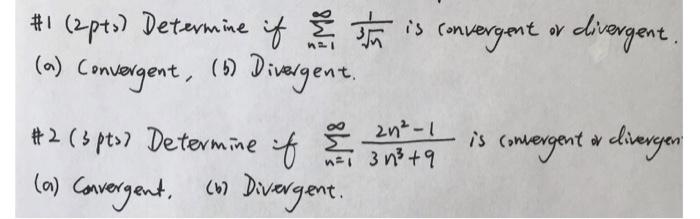 #1 (2pts) Determine if ∑_{n=1}^{∞} 1/∛n is convergent or divergent.
(a) Convergent, (b) Divergent.
#2 (3 pts) Determine if ∑_{n=1}^{∞} (2n²-1)/(3n³+9) is convergent or divergen
(a) Convergent. (b) Divergent.